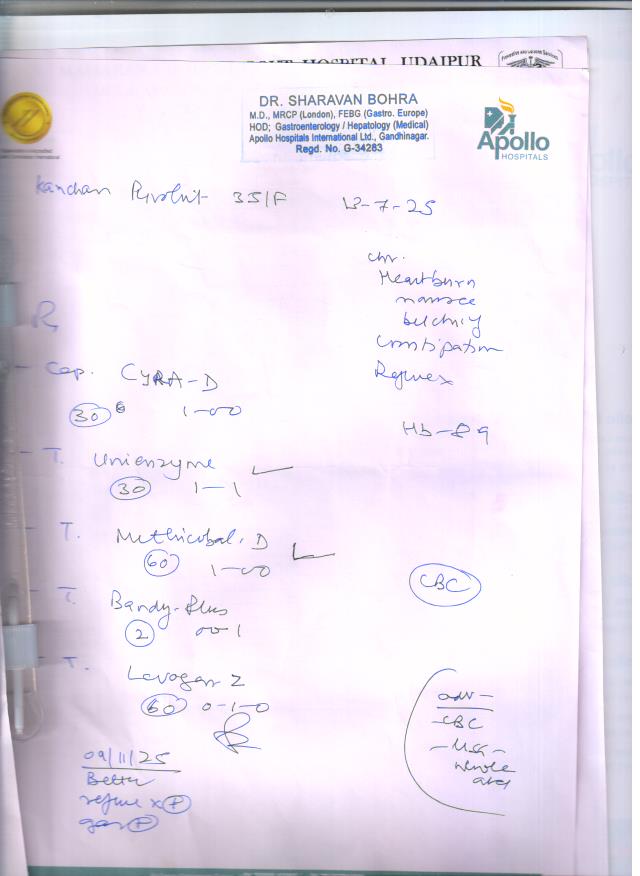 GOVT HOSPITAL UDAIPUR
DR. SHARAVAN BOHRA
M.D., MRCP (London), FEBG (Gastro. Europe)
HOD; Gastroenterology / Hepatology (Medical)
Apollo Hospitals International Ltd., Gandhinagar.
Regd. No. G-34283
Apollo
HOSPITALS
Kanchan 35/F 13-7-25
chr.
Heartburn
nausea
belching
Constipation
Reflux
Hb-8.9
Rx
- Cap. CYRA-D
30 1-0-0
- T. Unienzyme
30 1-1
- T. Methicobal. D
60 1-0-0
CBC
- T. Bandy-Plus
2 0-0-1
- T. Levogen Z
60 0-1-0
adv-
-CBC
-USG-
whole
abd
09/11/25
Better
reflux +
gas +